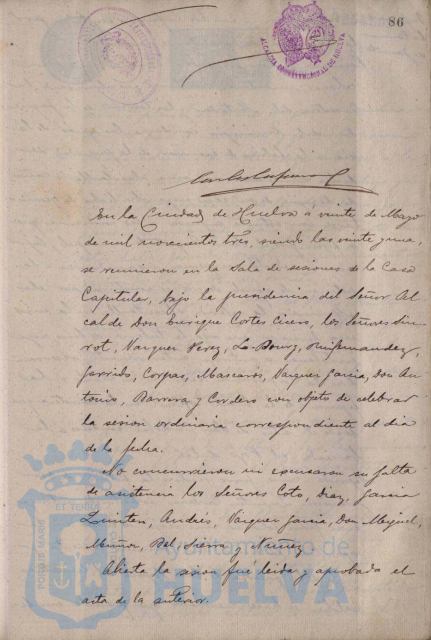 86
ALCALDIA CONSTITUCIONAL DE HUELVA
En la Ciudad de Huelva á veinte de Mayo
de mil novecientos tres, siendo las veinte y una,
se reunieron en la Sala de sesiones de la Casa
Capitular, bajo la presidencia del Señor Al
calde Don Enrique Cortes Cisero, los Señores
rot, Vazquez Perez, La-Bourg, Ruifernandez,
Garrido, Corpas, Mascarós, Vazquez Garcia, Don An
tonio, Barrera y Cordero con objeto de celebrar
la sesion ordinaria correspondiente al dia
de la fecha.
No concurrieron ni escusaron su falta
de asistencia los Señores Coto, Diaz, Garcia
Quintero, Andrés, Vazquez Garcia, Don Miguel,
Muñoz, Del Sierra y Nuñez
Abierta la sesion fué leida y aprobada el
acta de la anterior.
PORTUS MARIS ET TERRAE
Ayuntamiento de
HUELVA